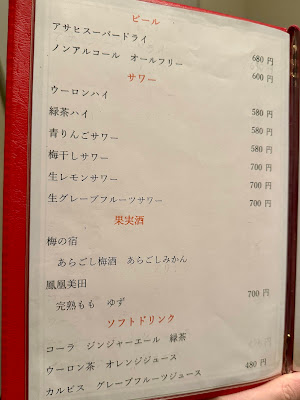 ビール
アサヒスーパードライ 680 円
ノンアルコール オールフリー 600 円
サワー
ウーロンハイ 580 円
緑茶ハイ 580 円
青りんごサワー 580 円
梅干しサワー 700 円
生レモンサワー 700 円
生グレープフルーツサワー 700 円
果実酒
梅の宿
あらごし梅酒 あらごしみかん
鳳凰美田 700 円
完熟もも ゆず
ソフトドリンク
コーラ ジンジャーエール 緑茶
ウーロン茶 オレンジジュース 480 円
カルピス グレープフルーツジュース